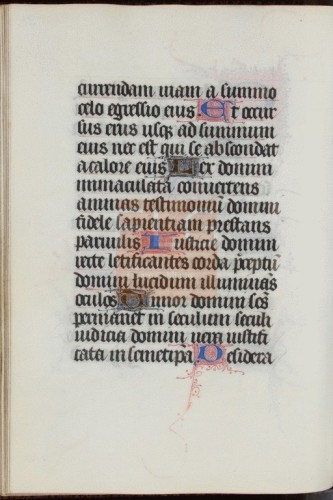 currendam uiam a summo
celo egressio eius Et occur
sus eius usqꝫ ad summum
eius nec est qui se abscondat
a calore eius Lex domini
immaculata conuertens
animas testimoniū domini
fidele sapientiam prestans
paruulis Iusticie domini
recte letificantes corda p̄ceptū
domini lucidum illuminās
oculos Timor domini scūs
permanet in seculum seculi
iudicia domini uera iustifi
cata in semetipā Desidera